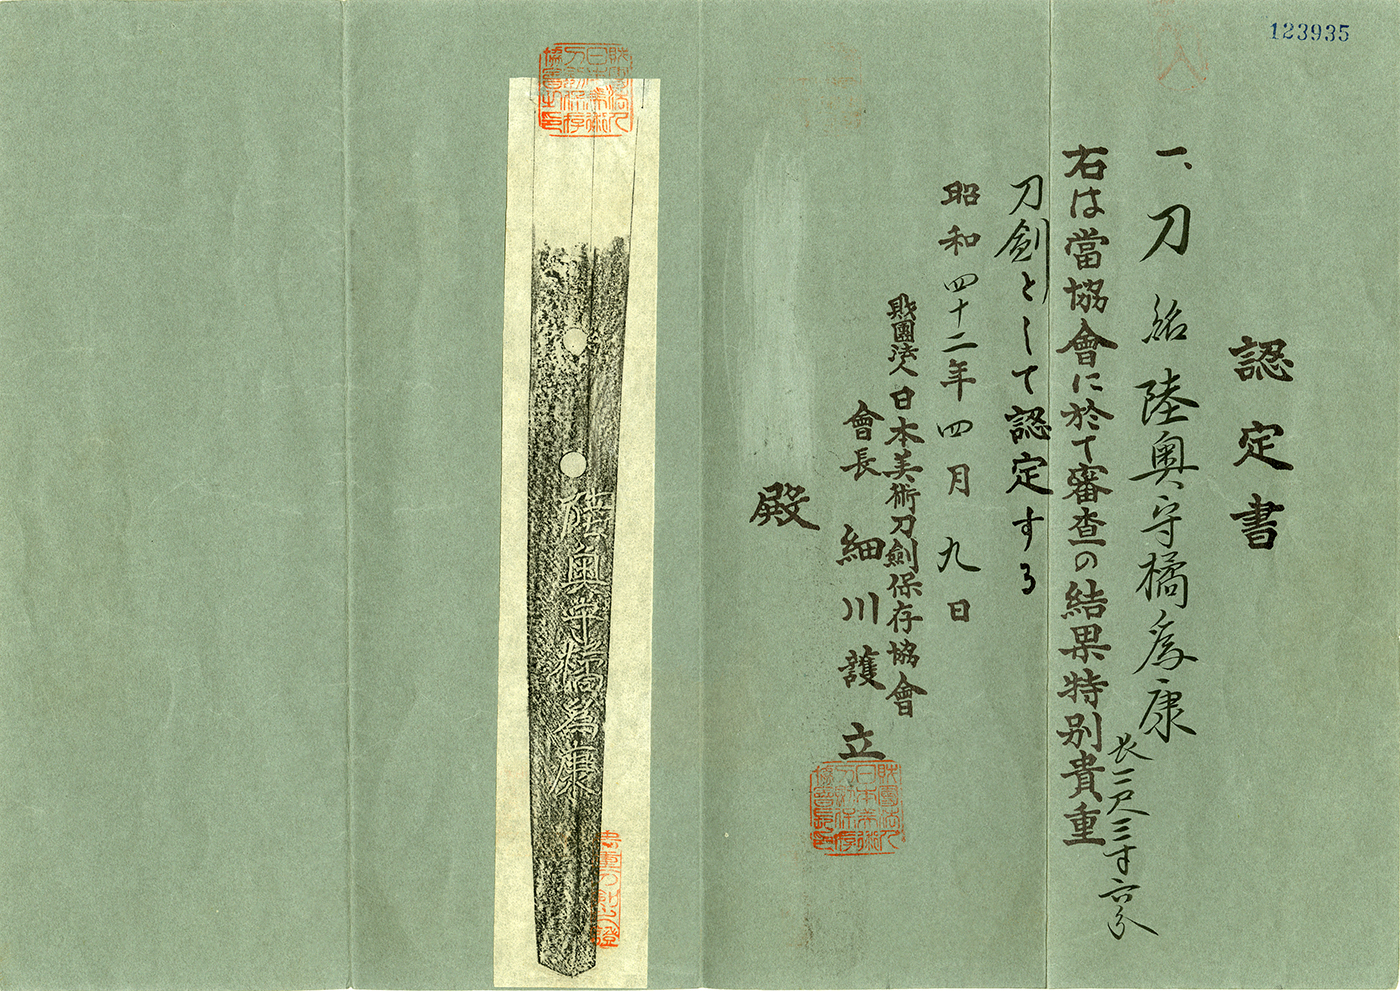 123935
認定書
一、刀 銘 陸奥守橘為康 長二尺三寸六分
右は當協會に於て審査の結果特別貴重
刀劍として認定する
昭和四十二年四月九日
財團法人日本美術刀劍保存協會
會長 細川護立
殿
財團法人
日本美術
刀劍保存
協會長印
財團法人
日本美術
刀劍保存
協會之印
陸奥守橘為康